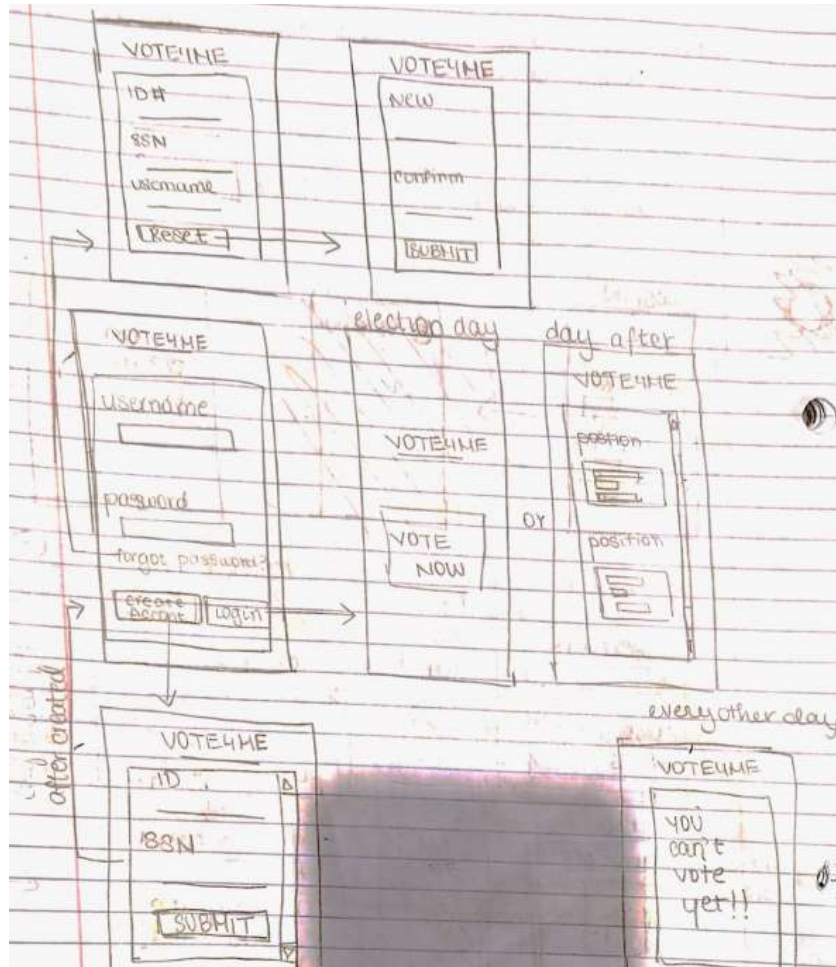 VOTE4ME
ID#
SSN
username
Reset
VOTE4ME
New
confirm
SUBMIT
VOTE4ME
username
password
forgot password?
create
Accont
Login
election day
VOTE4ME
VOTE
NOW
OR
day after
VOTE4ME
postion
position
after created
VOTE4ME
ID
SSN
SUBMIT
every other day
VOTE4ME
YOU
can't
vote
yet!!